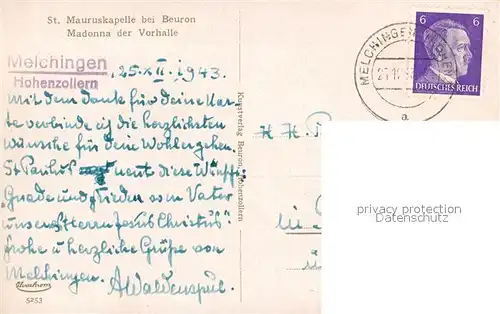 St. Mauruskapelle bei Beuron
Madonna der Vorhalle
Melchingen
Hohenzollern
25.XII.1943.
Mit dem Dank für Deine Kar-
te verbinde ich die herzlichsten
Wünsche für dein Wohlergehen.
St Paulus nennt diese Wünsche
"Gnade und Frieden vom Vater
unseres Herrn Jesus Christus".
Frohe u herzliche Grüße von
Melchingen. AWaldenspul.
5253
Kunstverlag Beuron, Hohenzollern
H. H.
in
MELCHINGEN
a
6 6
DEUTSCHES REICH
privacy protection
Datenschutz